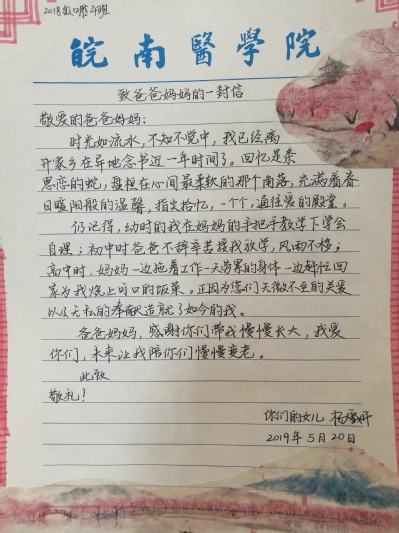 2018级口腔4班
皖南醫學院
致爸爸妈妈的一封信
敬爱的爸爸妈妈:
时光如流水,不知不觉中,我已经离
开家乡在异地念书近一年时间了。回忆是条
思恋的蛇,盘桓在心间最柔软的那个角落,充满着春
日暖阳般的温馨,指尖拾忆,一个个,通往爱的殿堂。
仍记得,幼时的我在妈妈的手把手教学下学会
自理;初中时爸爸不辞辛苦接我放学,风雨不移;
高中时,妈妈一边拖着工作一天劳累的身体一边赶忙回
家为我烧上可口的饭菜。正因为您们无微不至的关爱
以及无私的奉献造就了如今的我。
爸爸妈妈,感谢你们帮我慢慢长大,我爱
你们,未来让我陪你们慢慢变老。
此致
敬礼!
你们的女儿 杨
2019年5月20日